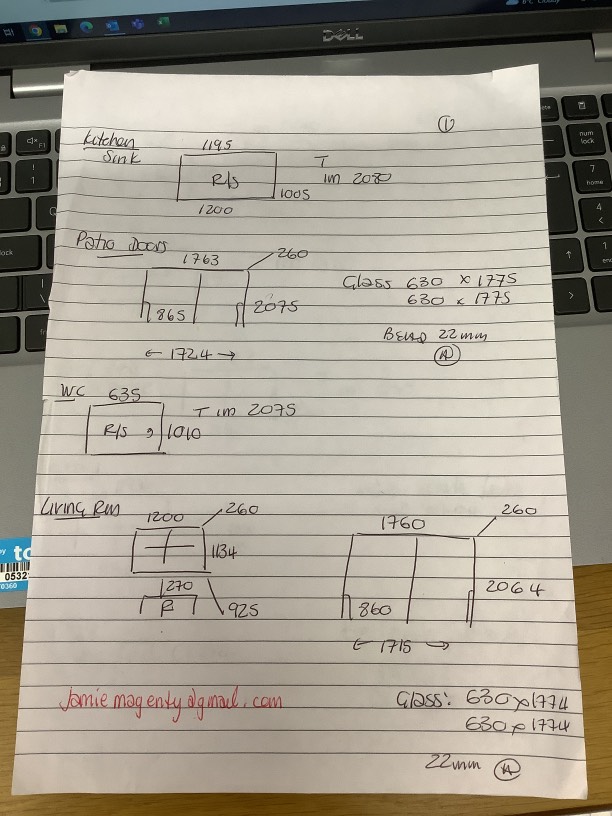 DELL
①
Kitchen
Sink
1195
R/S
1005
1200
T
1m 2080
Patio Doors
1763
260
865
2075
← 1724 →
Glass 630 x 1775
630 x 1775
BEAD 22mm
Ⓐ
WC 635
R/S
1010
T 1m 2075
Living Rm
1200
260
1134
270
R
925
1760
260
860
2064
← 1715 →
Jamiemagenty@gmail.com
Glass: 630x1774
630x1774
22mm Ⓐ